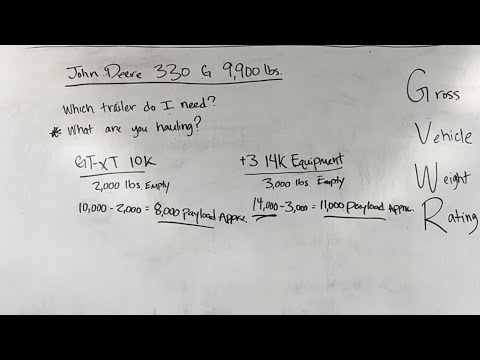 John Deere 330 G 9,900 lbs.
Which trailer do I need?
* What are you hauling?
GT-XT 10K
2,000 lbs. Empty
10,000 - 2,000 = 8,000 Payload Approx.
+3 14K Equipment
3,000 lbs. Empty
14,000 - 3,000 = 11,000 Payload Approx.
Gross
Vehicle
Weight
Rating